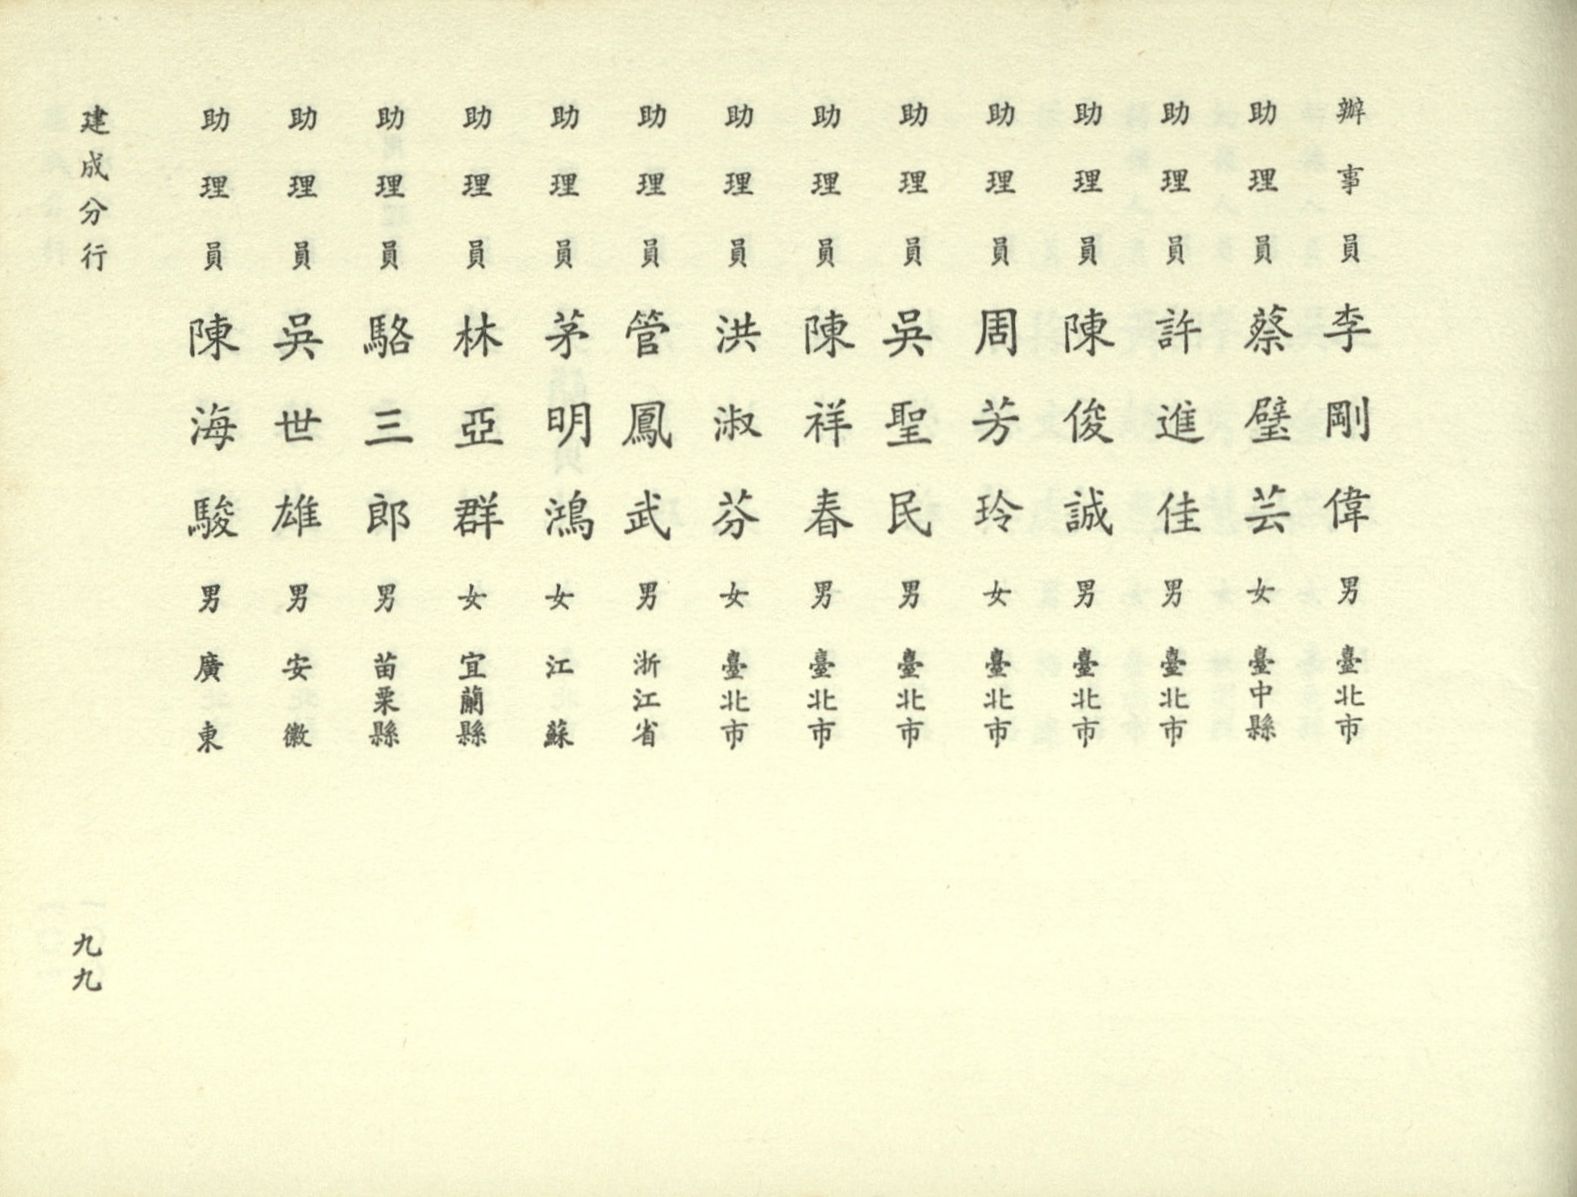 辦事員 李剛偉 男 臺北市
助理員 蔡璧芸 女 臺中縣
助理員 許進佳 男 臺北市
助理員 陳俊誠 男 臺北市
助理員 周芳玲 女 臺北市
助理員 吳聖民 男 臺北市
助理員 陳祥春 男 臺北市
助理員 洪淑芬 女 臺北市
助理員 管鳳武 男 浙江省
助理員 茅明鴻 女 江蘇
助理員 林亞群 女 宜蘭縣
助理員 駱三郎 男 苗栗縣
助理員 吳世雄 男 安徽
助理員 陳海駿 男 廣東
建成分行
九九